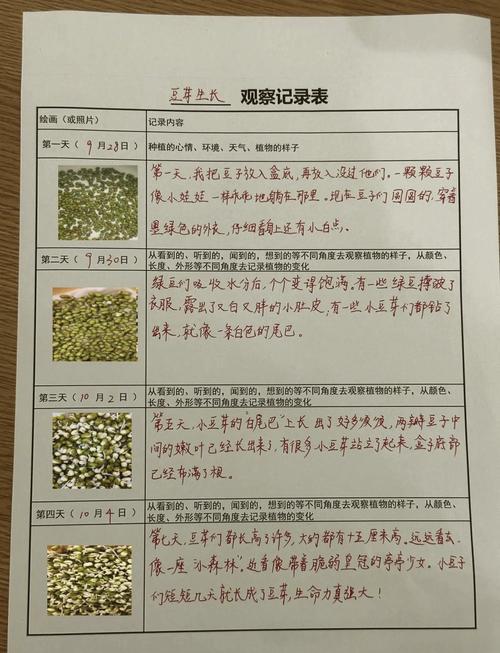 豆芽生长 观察记录表
绘画（或照片） 记录内容
第一天（9月28日） 种植的心情、环境、天气、植物的样子
第一天，我把豆子放入盆底，再放入没过他们。一颗颗豆子
像小娃娃一样乖乖地躺在那里。现在豆子们圆圆的，穿着
墨绿色的外衣，仔细看上还有小白点。
第二天（9月30日） 从看到的、听到的，闻到的，想到的等不同角度去观察植物的样子，从颜色、
长度、外形等不同角度去记录植物的变化
绿豆们吸收水分后，个个变得饱满，有一些绿豆撑破了
衣服，露出了又白又胖的小肚皮，有一些小豆芽们都钻了
出来，就像一条白色的尾巴。
第三天（10月2日） 从看到的，听到的，闻到的，想到的等不同角度去观察植物的样子，从颜色、
长度、外形等不同角度去记录植物的变化
第五天，小豆芽的“白尾巴”上长出了好多须须，两瓣豆子中
间的嫩叶已经长出来了，有很多小豆芽站立了起来，盒子底部
已经布满了根。
第四天（10月4日） 从看到的，听到的，闻到的，想到的等不同角度去观察植物的样子，从颜色、
长度、外形等不同角度去记录植物的变化
第七天，豆芽们都长高了许多，大约都有十五厘米高。远远看去
像一座“小森林”。近看像带着脆弱皇冠的亭亭少女。小豆子
们短短几天就长成了豆芽，生命力真强大！